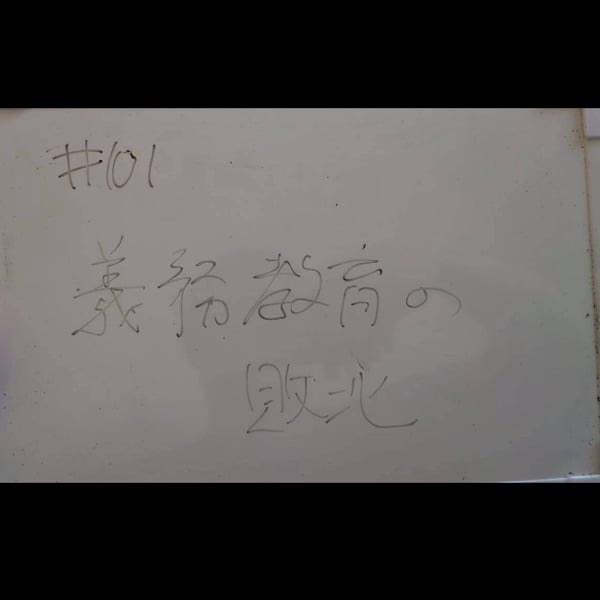 #101
義務教育の
敗北